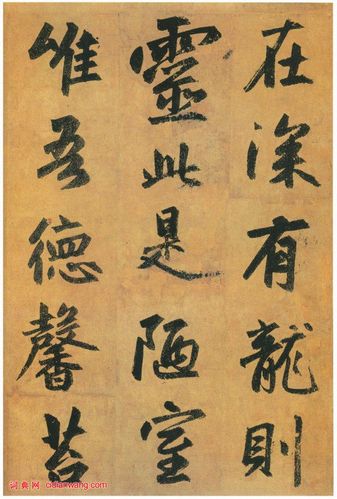 在深有龍則
靈此是陋室
唯吾德馨苔
词典网 cidianwang.com